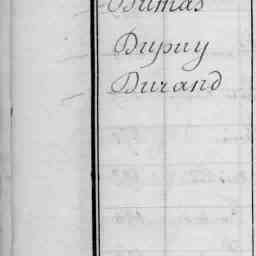 Dumas
Dupuy
Durand